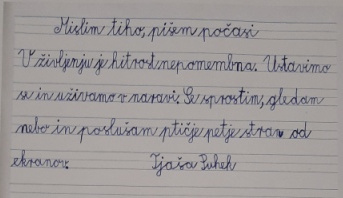 Mislim tiho, pišem počasi
V življenju je hitrost nepomembna. Ustavimo
se in uživamo v naravi. Se sprostim, gledam
nebo in poslušam ptičje petje stran od
ekranov. Tjaša